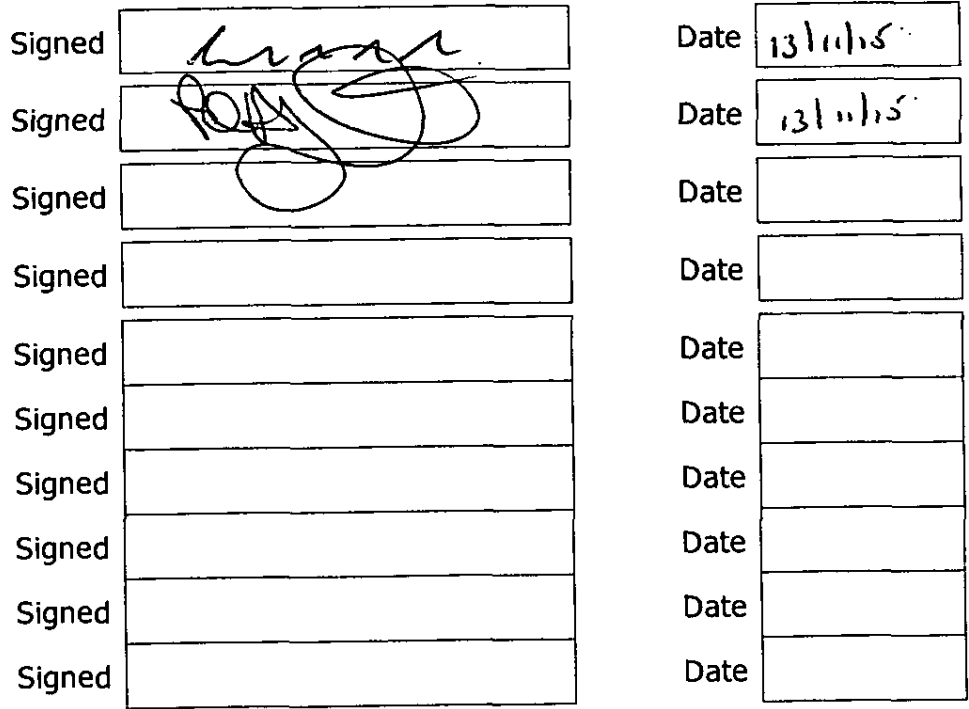 Signed Date 13/11/15
Signed Date 13/11/15
Signed Date
Signed Date
Signed Date
Signed Date
Signed Date
Signed Date
Signed Date
Signed Date